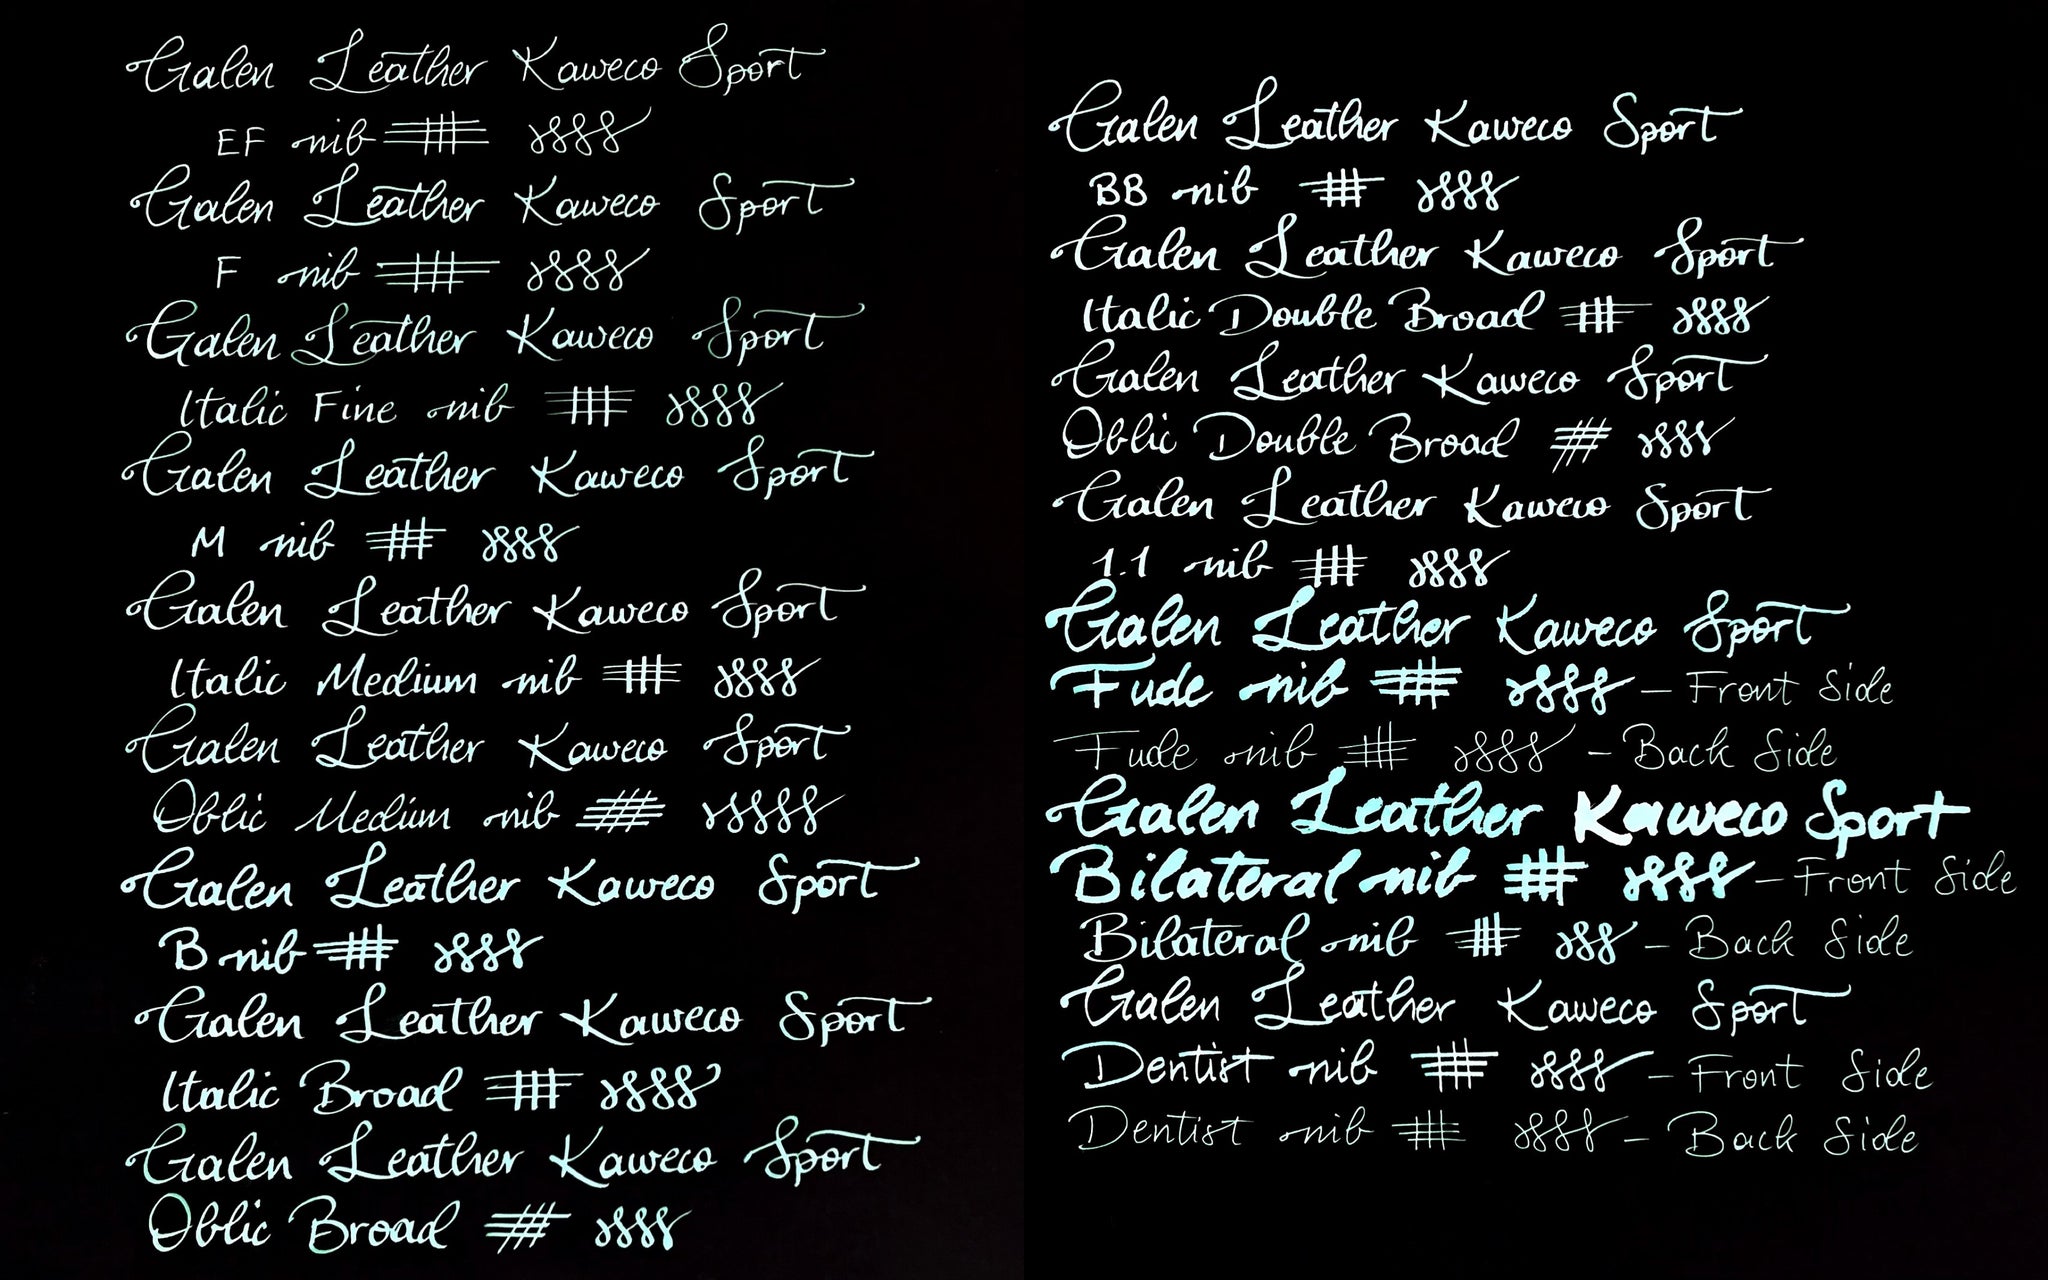 Galen Leather Kaweco Sport
EF nib
Galen Leather Kaweco Sport
F nib
Galen Leather Kaweco Sport
Italic Fine nib
Galen Leather Kaweco Sport
M nib
Galen Leather Kaweco Sport
Italic Medium nib
Galen Leather Kaweco Sport
Oblic Medium nib
Galen Leather Kaweco Sport
B nib
Galen Leather Kaweco Sport
Italic Broad
Galen Leather Kaweco Sport
Oblic Broad
Galen Leather Kaweco Sport
BB nib
Galen Leather Kaweco Sport
Italic Double Broad
Galen Leather Kaweco Sport
Oblic Double Broad
Galen Leather Kaweco Sport
1.1 nib
Galen Leather Kaweco Sport
Fude nib – Front Side
Fude nib – Back Side
Galen Leather Kaweco Sport
Bilateral nib – Front Side
Bilateral nib – Back Side
Galen Leather Kaweco Sport
Dentist nib – Front Side
Dentist nib – Back Side